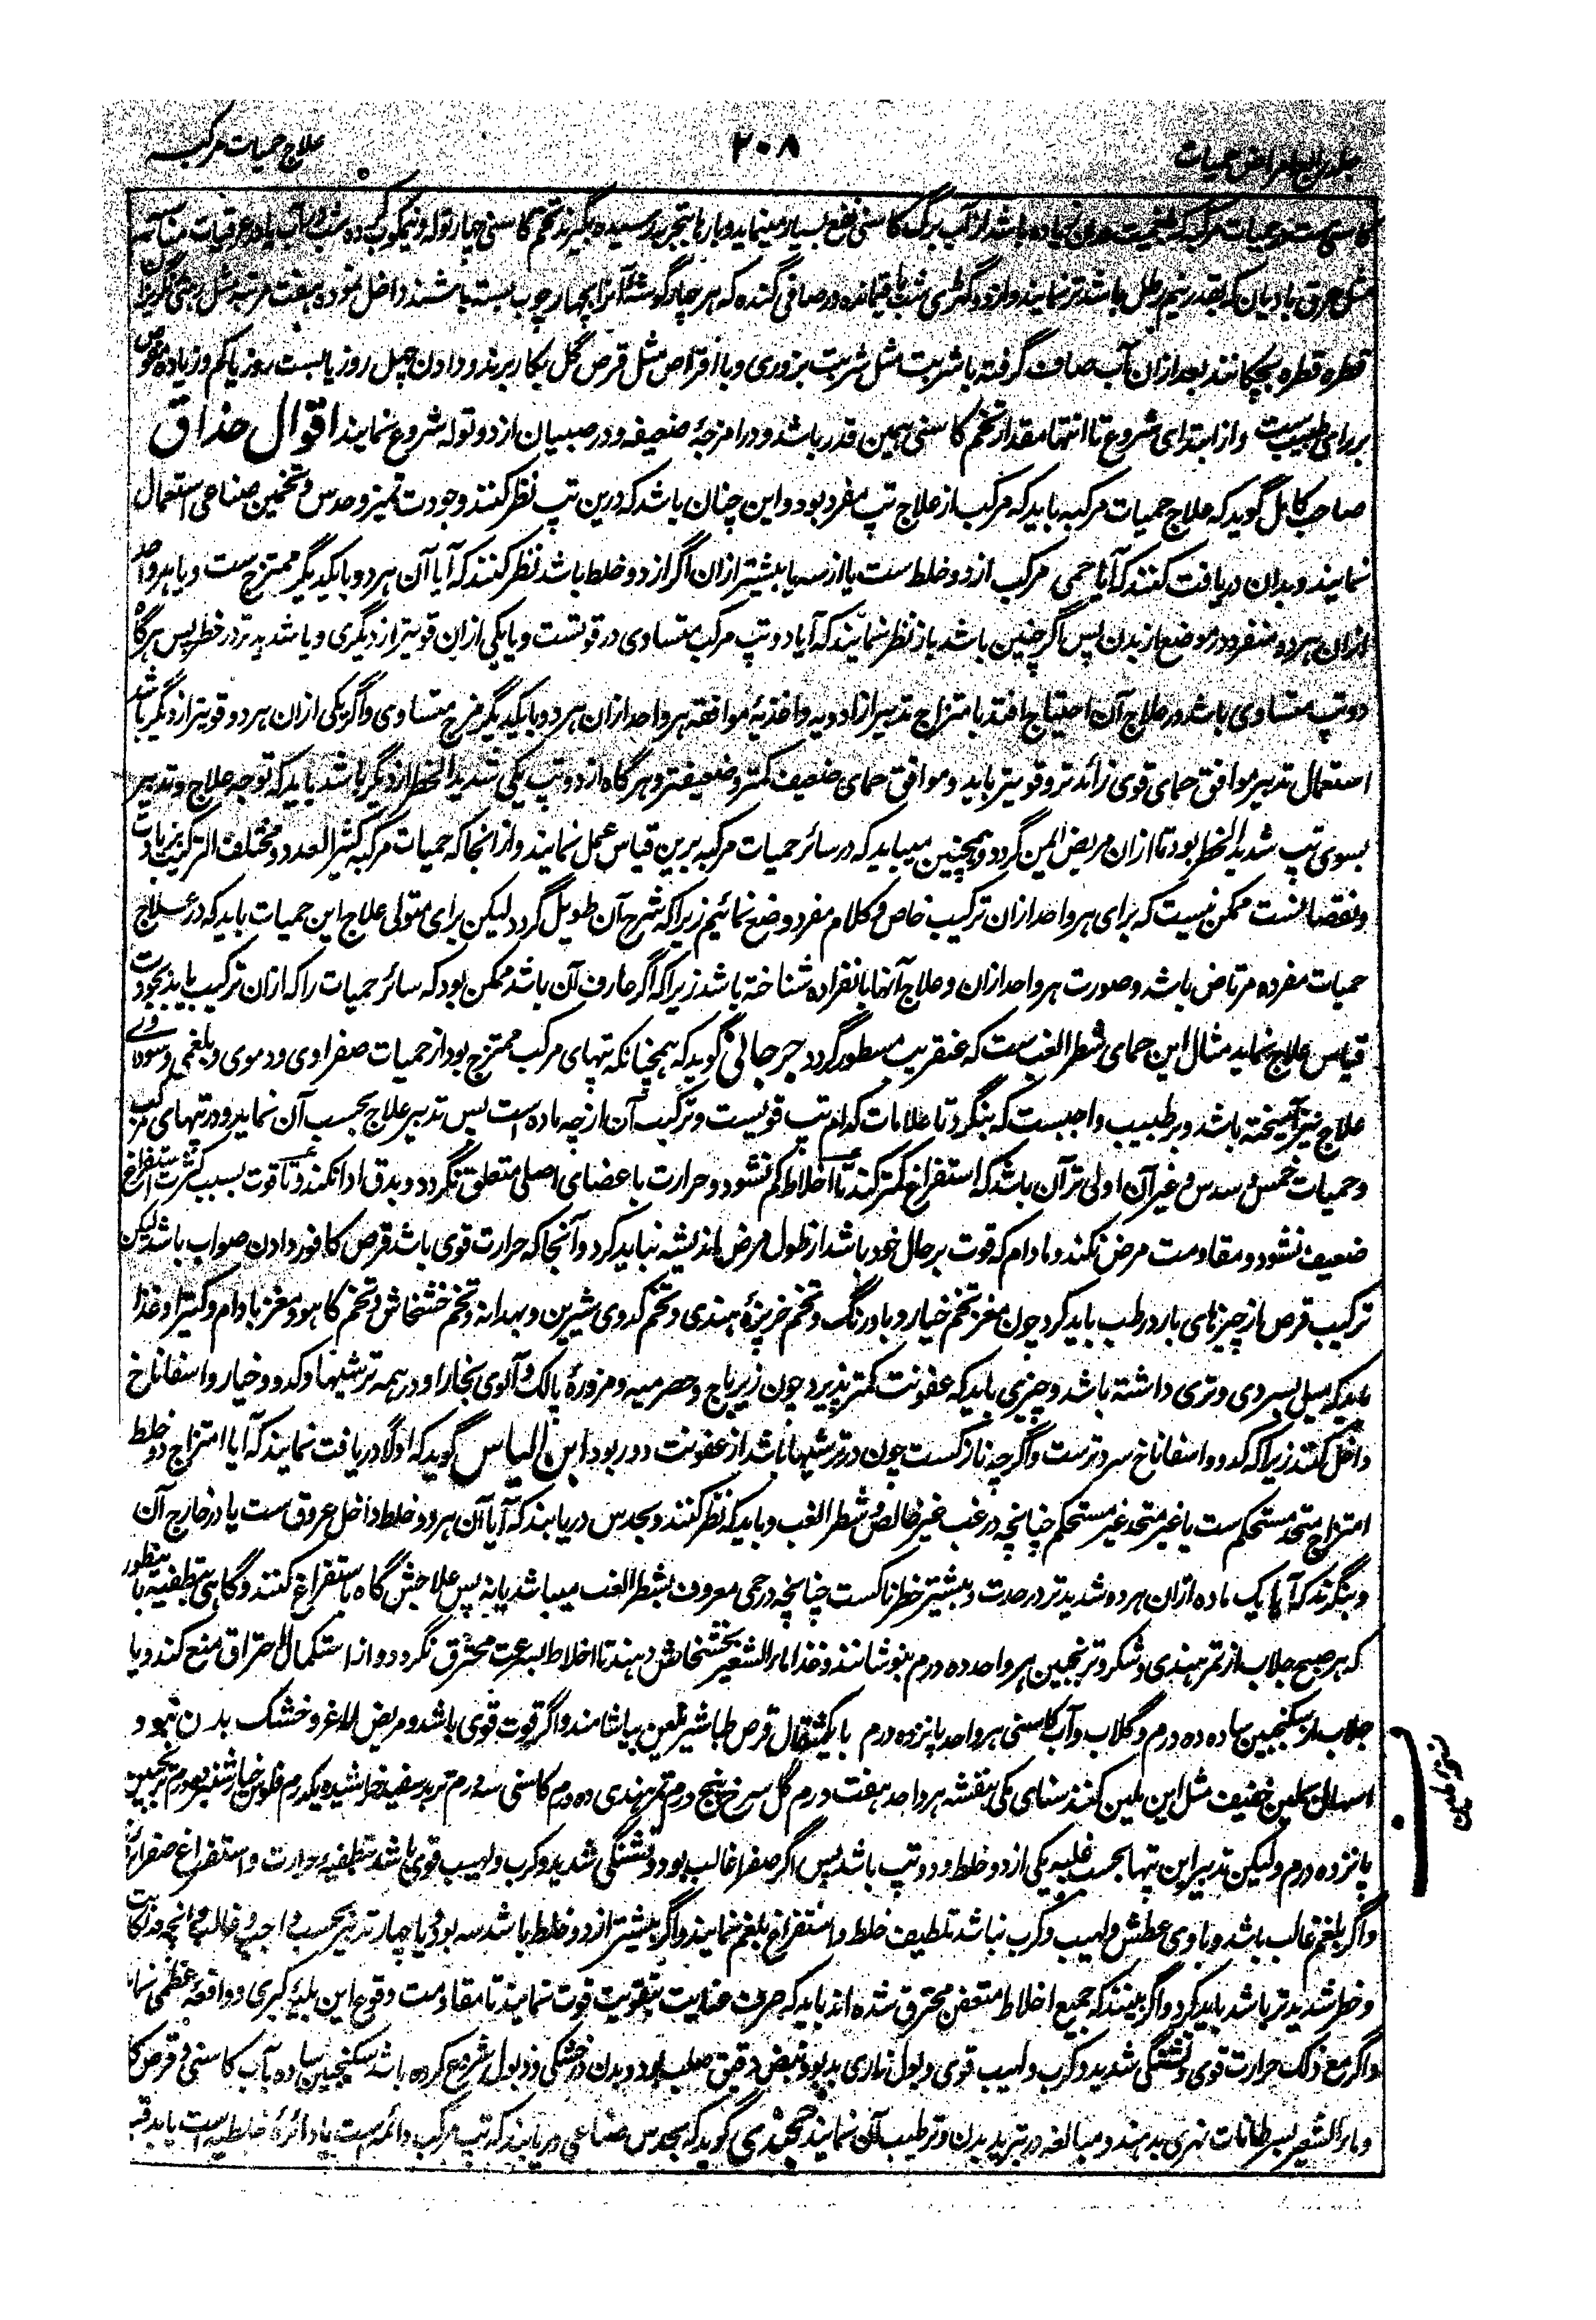 علاج حمیات مرکبه
۲۰۸
جلد رابع امراض حمیات
کاسنی ست در حمیات مرکبه که بلغمیت دران زیاده باشد از آب برگ کاسنی نفع بسیار مینماید و بارها بتجربه رسیده بگیرند تخم کاسنی چهار توله و نیمکوب کرده شب در آب یا در عرقیات مناسبه
مثل عرق بادیان که بقدر نیم رطل باشد تر نمایند و از دو گهڑی شب باقیمانده در صافی گنده که هر چار گوشهٔ آنرا بچهار چوب بسته باشند داخل نموده هفت مرتبه مثل
قطره قطره بچکانند بعد ازان آب صاف گرفته با شربت مثل شربت بزوری و با اقراص مثل قرص گل بکار برند و دادن چهل روز یا بست روز یا کم و زیاده مفوض
بر رای طبیب ست و از ابتدای شروع تا انتها مقدار تخم کاسنی همین قدر باشد و در امزجهٔ ضعیفه و در صبیان از دو توله شروع نمایند اقوال حذاق
صاحب کامل گوید که علاج حمیات مرکبه باید که مرکب از علاج تپ مفرد بود و این چنان باشد که درین تپ نظر کنند و جودت تمیز و حدس و تخمین صناعی استعمال
نمایند و بدان دریافت کنند که آیا حمی مرکب از دو خلط ست یا از سه یا بیشتر ازان اگر از دو خلط باشد نظر کنند که آیا آن هر دو بایکدیگر ممتزج ست و یا هر واحد
ازان هر دو منفرد در موضع از بدن پس اگر چنین باشد باز نظر نمایند که آیا دو تپ مرکب متساوی در قوتست و یا یکی ازان قویتر از دیگری و یا شدیدتر در خطر پس هرگاه
دو تپ متساوی باشد در علاج آن احتیاج افتد بامتزاج تدبیر از ادویه و اغذیهٔ موافقه هر واحد ازان هر دو بایکدیگر مزج متساوی و اگر یکی ازان هر دو قویتر از دیگر باشد
استعمال تدبیر موافق حمای قوی زائدتر و قویتر باید و موافق حمای ضعیف کمتر و ضعیفتر و هرگاه از دو تپ یکی شدید الخطر از دیگر باشد باید که توجه علاج و تدبیر
بسوی تپ شدید الخطر بود تا ازان مریض ایمن گردد و همچنین میباید که در سائر حمیات مرکبه برین قیاس عمل نمایند و از انجا که حمیات مرکبه کثیر العدد و مختلف الترکیب بزیادت
و نقصانست ممکن نیست که برای هر واحد ازان ترکیب خاص و کلام مفرد وضع نمائیم زیرا که شرح آن طویل گردد لیکن برای متولی علاج این حمیات باید که در علاج
حمیات مفرده مرتاض باشد و صورت هر واحد ازان و علاج آنها بانفراده شناخته باشد زیرا که اگر عارف آن باشد ممکن بود که سائر حمیات را که ازان ترکیب یابد بجودت
قیاس علاج نماید مثال این حمای شطر الغب ست که عنقریب مسطور گردد جرجانی گوید که همچنانکه تپهای مرکب ممتزج بود از حمیات صفراوی و دموی و بلغمی و سوداوی
علاج نیز آمیخته باشد و بر طبیب واجبست که بنگرد تا علامات کدام تپ قویست و ترکیب آن از چه ماده است پس تدبیر علاج بحسب آن نماید و در تپهای مرکب
و حمیات خمس و سدس و غیر آن اولی تر آن باشد که استفراغ کمتر کنند تا اخلاط کم نشود و حرارت باعضای اصلی متعلق نگردد و بدق ادا نکند و تا قوت بسبب کثرت استفراغ
ضعیف نشود و مقاومت مرض نکند و مادام که قوت بر حال خود باشد از طول مرض اندیشه نباید کرد و آنجا که حرارت قوی باشد قرص کافور دادن صواب باشد لیکن
ترکیب قرص از چیزهای بارد رطب باید کرد چون مغز تخم خیار و بادرنگ و تخم خربزهٔ هندی و تخم کدوی شیرین و بهدانه و تخم خشخاش و تخم کاهو و مغز بادام و کتیرا و غذا
باید که میل بسردی و تری داشته باشد و چیزی باید که عفونت کمتر پذیرد چون زیرباج و حصرمیه و مزورهٔ پالک و آلوی بخارا و در همه ترشیها و کدو و خیار و اسفاناخ
داخل کنند زیرا که کدو و اسفاناخ سرد ترست و اگرچه نازکست چون در ترشیها باشد از عفونت دور بود ابن الیاس گوید که اولا دریافت نمایند که آیا امتزاج دو خلط
امتزاج متحد مستحکم ست یا غیر متحد غیر مستحکم چنانچه در غب غیر خالص و شطر الغب و باید که نظر کنند و بحدس دریابند که آیا آن هر دو خلط داخل عروق ست یا در خارج آن
و بنگرند که آیا یک ماده ازان هر دو شدیدتر در حدت و بیشتر خطرناکست چنانچه در حمی معروف بشطر الغب میباشد یا نه پس علاجش گاه باستفراغ کنند و گاهی بتطفیه باینطور
که هر صبح جلاب از تمر هندی و شکر و ترنجبین هر واحد ده درم بنوشانند و غذا ماء الشعیر بخشخاش دهند تا اخلاط بسرعت محترق نگردد و از استکمال احتراق منع کند و یا
جلاب از سکنجبین ساده ده درم و گلاب و آب کاسنی هر واحد پانزده درم با یکمثقال قرص طباشیر ملین بیاشامند و اگر قوت قوی باشد و مریض لاغر و خشک بدن نبود
اسهال بملین خفیف مثل این ملین کنند سنای مکی بنفشه هر واحد هفت درم گل سرخ پنج درم تمر هندی ده درم کاسنی سه درم تربد سفید خراشیده یکدرم فلوس خیارشنبر درم ترنجبین
پانزده درم ولیکن تدبیر این تپها بحسب غلبه یکی از دو خلط و دو تپ باشد پس اگر صفرا غالب بود و تشنگی شدید و کرب و لهیب قوی باشد تطفیه حرارت و استفراغ صفرا
و اگر بلغم غالب باشد و با وی عطش و لهیب و کرب نباشد تلطیف خلط و استفراغ بلغم نمایند و اگر بیشتر از دو خلط باشد سه بود یا چهار تدبیر بحسب واجب و غالب و آنچه
و خطر شدیدتر باشد باید کرد و اگر بینند که جمیع اخلاط متعفن محترق شده اند باید که صرف عنایت بتقویت قوت نمایند تا مقاومت وقوع این بلیهٔ کبری و واقعهٔ عظمی نماید
و اگر مع ذلک حرارت قوی و تشنگی شدید و کرب و لهیب قوی و بول ناری بدبو و نبض دقیق صلب بود و بدن در خشکی و ذبول شروع کرده باشد سکنجبین ساده بآب کاسنی و قرص
و ماء الشعیر بسرطانات نهری بدهند و مبالغه در تبرید بدن و ترطیب آن نمایند خجندی گوید که بحدس صناعی دریابند که تپ مرکب دائمه است یا دائرهٔ خلطیه است
نسخه ملین